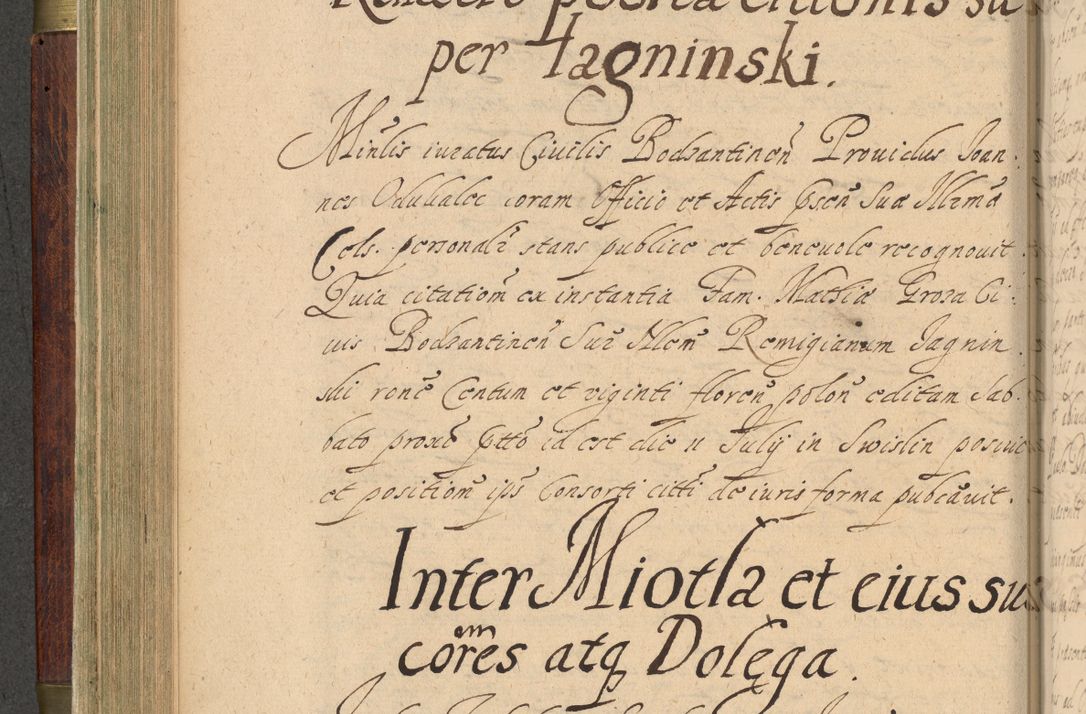 per Iagninski.
Minlis iuratus Ciuilis Bodzantinen̄ Prouidus Ioan-
nes Odulialec coram Officio et Actis Ipsen̄ Suæ Illrmæ
Cels. personalr̄ stans publice et beneuole recognouit.
Quia citationē ex instantia Fam. Mathiæ Groza Ci-
uis Bodzantinen̄ Sur Nlem Remigianum Iagnin
ski ronē Centum et viginti floren̄ polon̄ editam Sab-
bato proxō ptto id est die 11 Iulij in Swislin posuit
et positionē ips Consorti citti de iuris forma pubcāuit.
Inter Miotla et eius suc
coresem atq Dolęga.